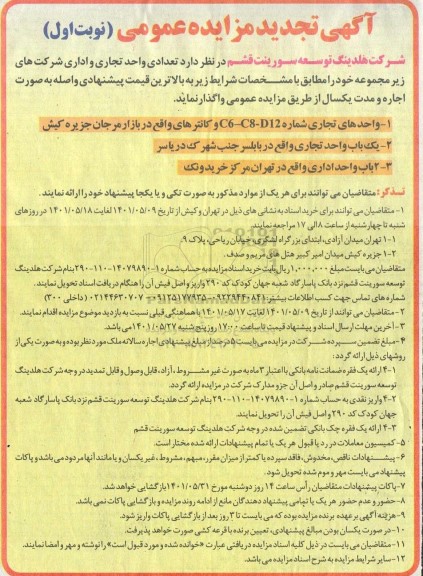 آگهی تجدید مزایده عمومی (نوبت اول)
شرکت هلدینگ توسعه سورینت قشم در نظر دارد تعدادی واحد تجاری و اداری شرکت های
زیر مجموعه خود را مطابق با مشخصات شرایط زیر به بالاترین قیمت پیشنهادی واصله به صورت
اجاره و مدت یکسال از طریق مزایده عمومی واگذار نماید.
۱-واحدهای تجاری شماره C6-C8-D12 و کانتر های واقع در بازار مرجان جزیره کیش
۲-یک باب واحد تجاری واقع در بابلسر جنب شهرک دریاسر
۳-۲باب واحد اداری واقع در تهران مرکز خرید ونک
تذکر: متقاضیان می توانند برای هر یک از موارد مذکور به صورت تکی و یا یکجا پیشنهاد خود را ارائه نمایند.
۱- متقاضیان می توانند برای خرید اسناد به نشانی های ذیل در تهران و کیش از تاریخ ۱۴۰۱/۰۵/۰۹ لغایت ۱۴۰۱/۰۵/۱۸ در روزهای
شنبه تا چهارشنبه از ساعت ۸الی ۱۷ مراجعه نمایند.
۱-۱ تهران میدان آزادی، ابتدای بزرگراه لشگری، خیابان ریاحی، پلاک ۹
۱-۲ جزیره کیش میدان امیر کبیر هتل های مریم و صدف.
متقاضیان می بایست مبلغ ۱,۰۰۰,۰۰۰ ریال بابت خرید اسناد مزایده به حساب شماره ۱-۱۴۰۷۹۸۹۰-۱۱۰-۲۹۰ بنام شرکت هلدینگ
توسعه سورینت قشم نزد بانک پاسارگاد شعبه جهان کودک کد ۲۹۰ واریز و اصل فیش آن را هنگام دریافت اسناد تحویل نمایند.
شماره های تماس جهت کسب اطلاعات بیشتر: ۰۹۲۲۹۴۴۰۸۴۱-۰۹۱۲۵۱۷۷۹۳۵-۰۲۱۴۴۶۳۰۷۰۷ (داخلی ۳۰۰)
۲- متقاضیان می توانند از تاریخ ۱۴۰۱/۰۵/۰۹ لغایت ۱۴۰۱/۰۵/۱۷ با هماهنگی قبلی نسبت به بازدید موضوع مزایده اقدام نمایند.
۳-آخرین مهلت ارسال اسناد و پیشنهاد قیمت تا ساعت ۱۷:۰۰ روز پنج شنبه ۱۴۰۱/۰۵/۲۷ می باشد.
۴-مبلغ تضمین سپرده شرکت در مزایده می بایست ۵درصد از مبلغ پیشنهادی اجاره سالانه ملک مورد نظر بوده و به صورت یکی از
روشهای ذیل ارائه گردد:
۴-۱ ارائه یک فقره ضمانت نامه بانکی با اعتبار ۳ ماه به صورت غیر مشروط، آزاد، قابل وصول و قابل تمدید در وجه شرکت هلدینگ
توسعه سورینت قشم صادر و اصل آن جزو مدارک شرکت در مزایده ارائه گردد.
۴-۲ واریز نقدی به حساب شماره ۱-۱۴۰۷۹۸۹۰-۱۱۰-۲۹۰ بنام شرکت هلدینگ توسعه سورینت قشم نزد بانک پاسارگاد شعبه
جهان کودک کد ۲۹۰ و اصل فیش آن را تحویل نمایند.
۴-۳ ارائه یک فقره چک بانکی تضمین شده در وجه شرکت هلدینگ توسعه سورینت قشم
۵-کمیسیون معاملات در رد یا قبول هر یک یا تمام پیشنهادات ارائه شده مختار است.
۶-پیشنهادات ناقص، مخدوش، فاقد سپرده یا کمتر از میزان مقرر، مبهم، مشروط، غیر یکسان و یا مانند آنها مردود می باشد و پاکات
پیشنهاد می بایست مهر و موم شده تحویل شود.
۷-پاکات پیشنهادات متقاضیان رأس ساعت ۱۴ روز دوشنبه مورخ ۱۴۰۱/۰۵/۳۱ بازگشایی خواهد شد.
۸-حضور و عدم حضور هر یک یا تمامی پیشنهاد دهندگان مانع از ادامه روند مزایده و بازگشایی پاکات نمی باشد.
۹-هزینه آگهی بر عهده برنده مزایده بوده که می بایست تا ۳ روز بعد از بازگشایی پاکات واریز شود.
۱۰-در صورت یکسان بودن مبالغ پیشنهادی، تعیین برنده با قرعه کشی صورت خواهد پذیرفت.
۱۱-متقاضیان می بایست در ذیل کلیه اسناد مزایده دریافتی عبارت «خوانده شده و مورد قبول است» را نوشته و مهر و امضا نمایند.
۱۲-سایر شرایط مزایده به شرح اسناد مزایده می باشد.